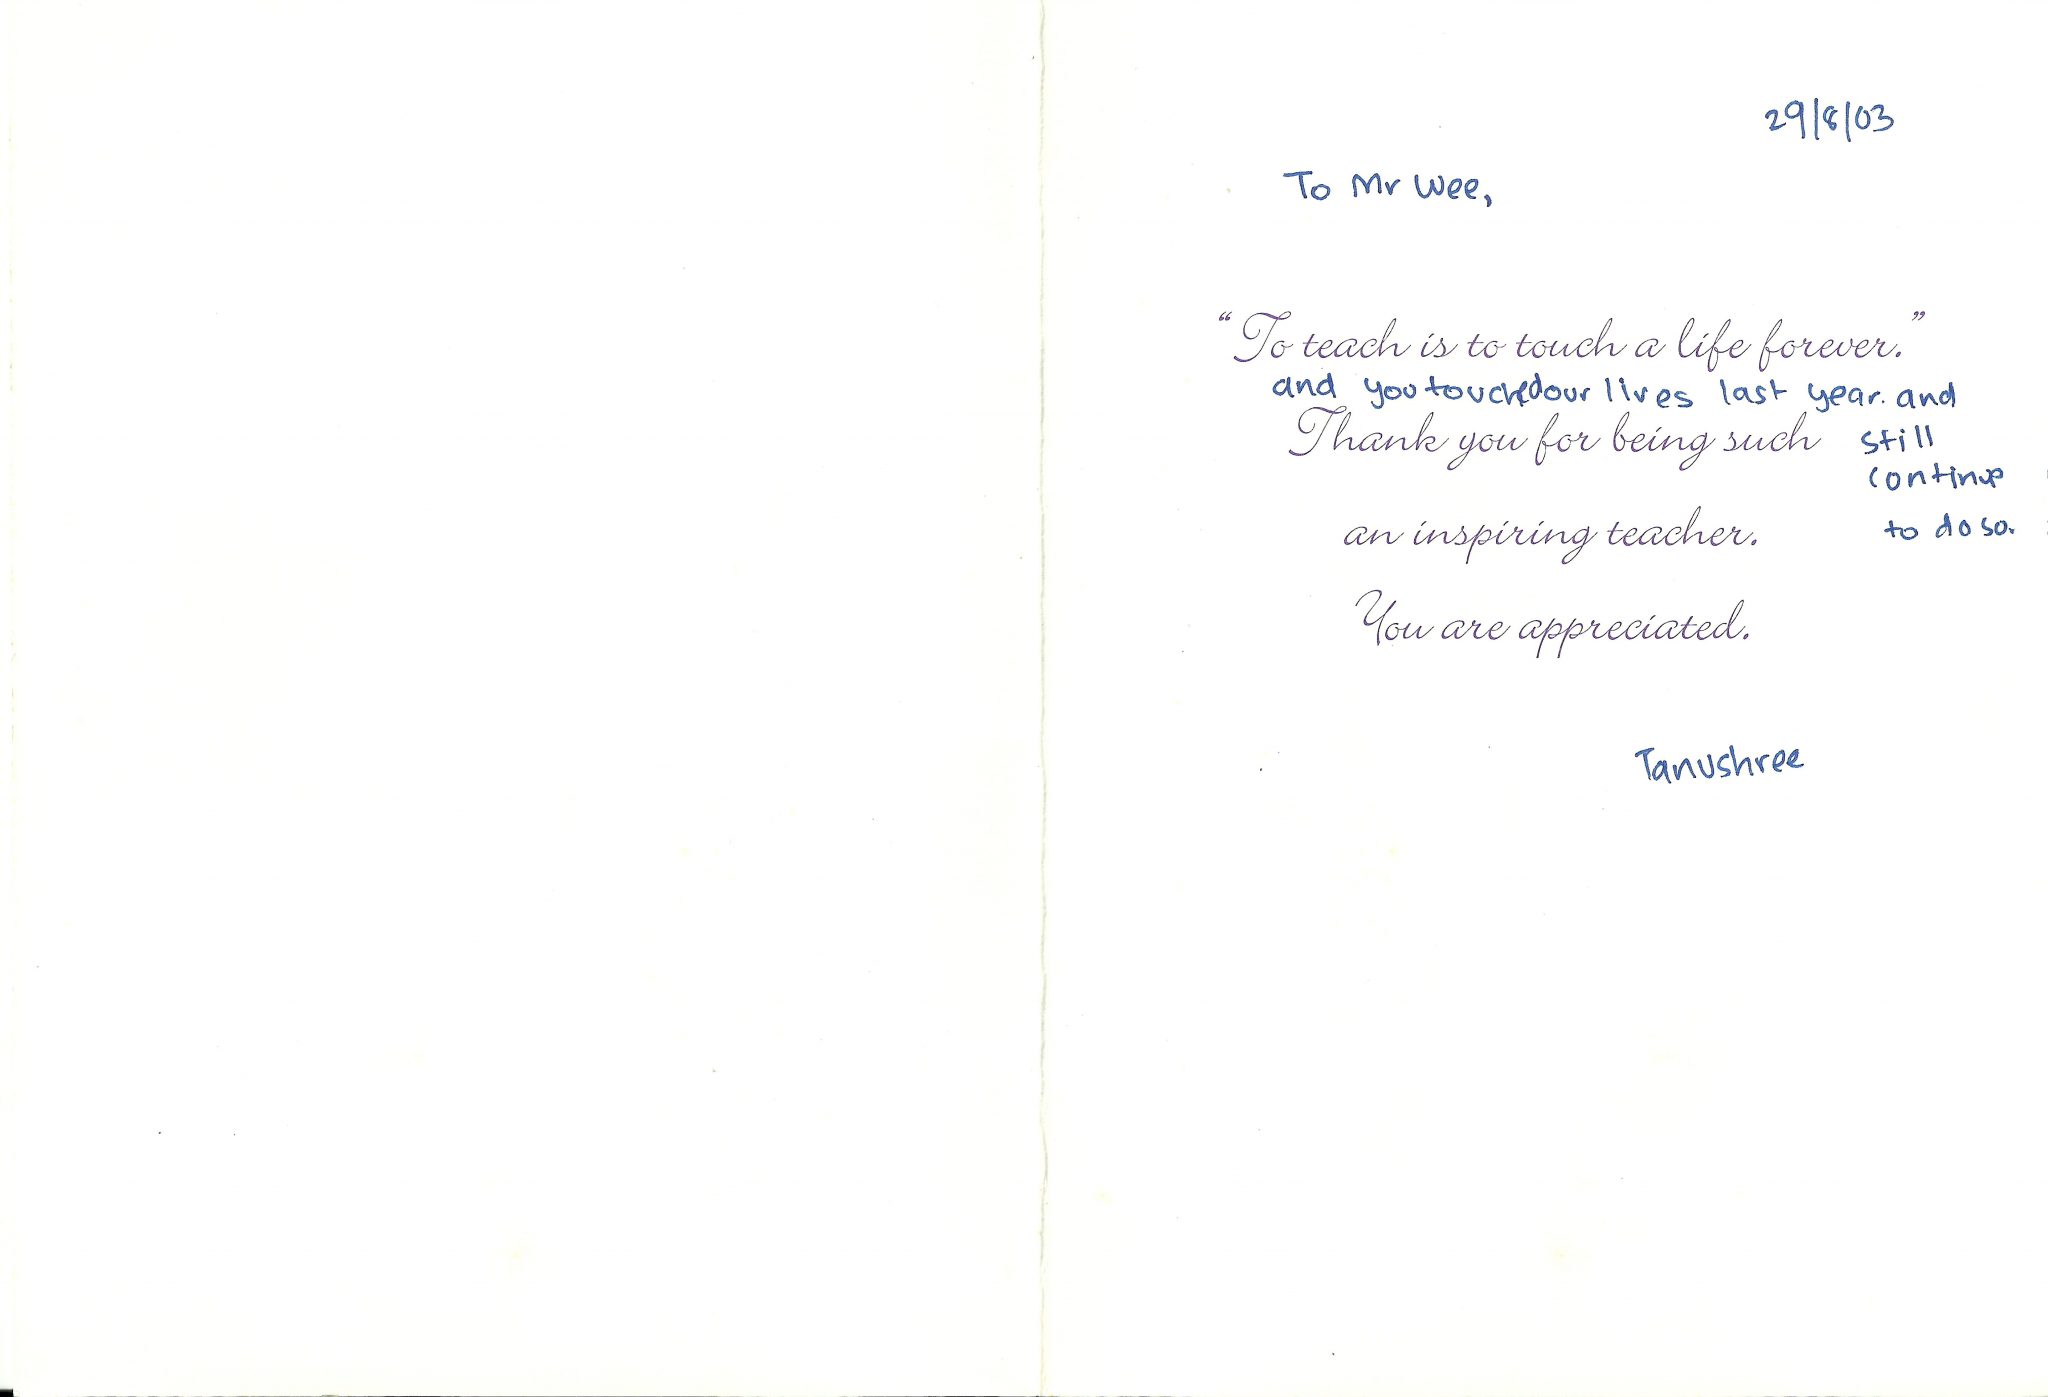 29/8/03
To Mr Wee,
“To teach is to touch a life forever.”
and you touched our lives last year. and
still
continue
to do so.
Thank you for being such
an inspiring teacher.
You are appreciated.
Tanushree